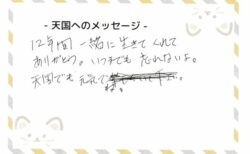 - 天国へのメッセージ -
12年間 一緒に生きて くれて
ありがとう。いつまでも 忘れないよ。
天国でも 元気で
ね。